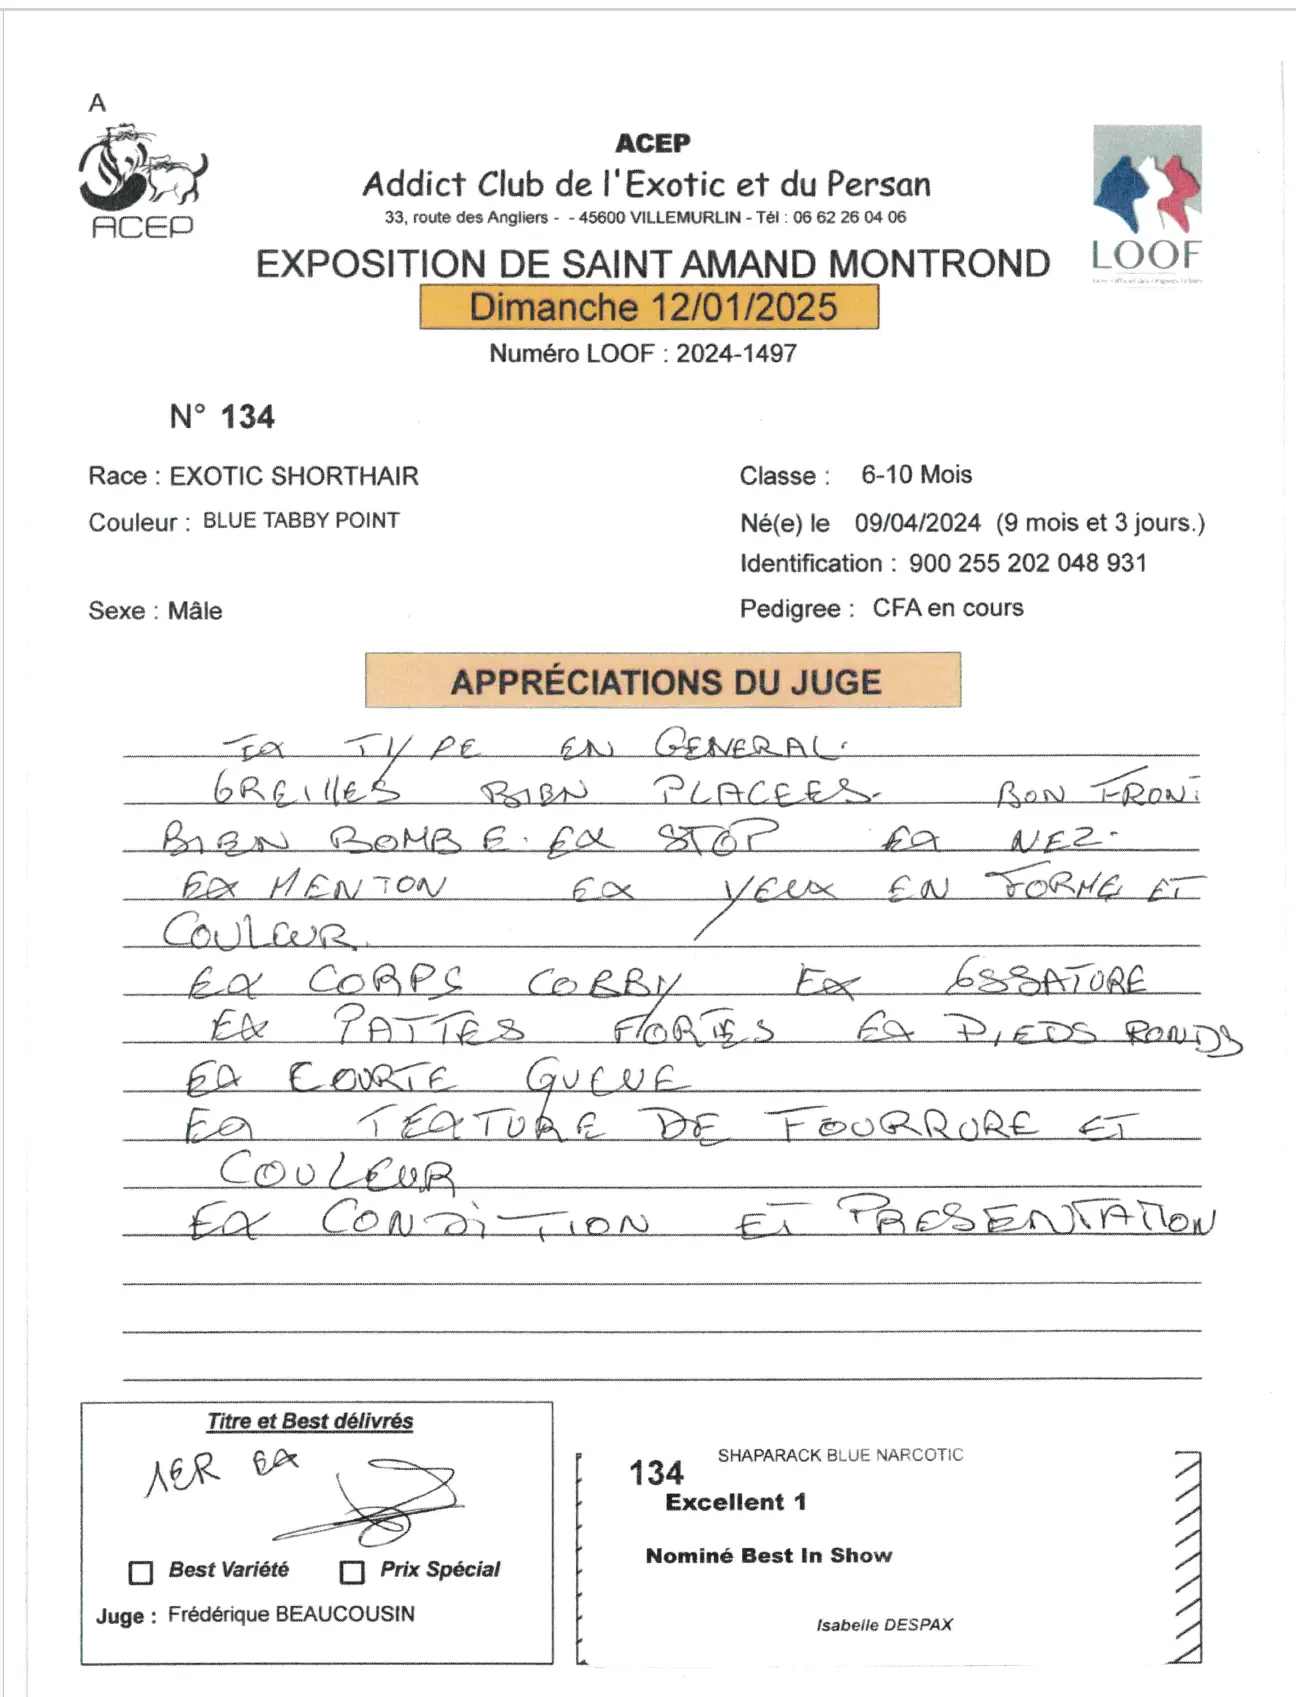 A
ACEP
ACEP
Addict Club de l'Exotic et du Persan
33, route des Angliers - - 45600 VILLEMURLIN - Tél : 06 62 26 04 06
LOOF
EXPOSITION DE SAINT AMAND MONTROND
Dimanche 12/01/2025
Numéro LOOF : 2024-1497
N° 134
Race : EXOTIC SHORTHAIR
Classe : 6-10 Mois
Couleur : BLUE TABBY POINT
Né(e) le 09/04/2024 (9 mois et 3 jours.)
Identification : 900 255 202 048 931
Sexe : Mâle
Pedigree : CFA en cours
APPRÉCIATIONS DU JUGE
EX TYPE EN GENERAL.
OREILLES BIEN PLACEES. BON FRONT
BIEN BOMBE. EX STOP EX NEZ.
EX MENTON EX YEUX EN FORME ET
COULEUR.
EX CORPS COBBY EX OSSATURE
EX PATTES FORTES EX PIEDS RONDS
EX COURTE QUEUE
EX TEXTURE DE FOURRURE ET
COULEUR
EX CONDITION ET PRESENTATION
Titre et Best délivrés
1ER EX
Best Variété Prix Spécial
Juge : Frédérique BEAUCOUSIN
SHAPARACK BLUE NARCOTIC
134
Excellent 1
Nominé Best In Show
Isabelle DESPAX